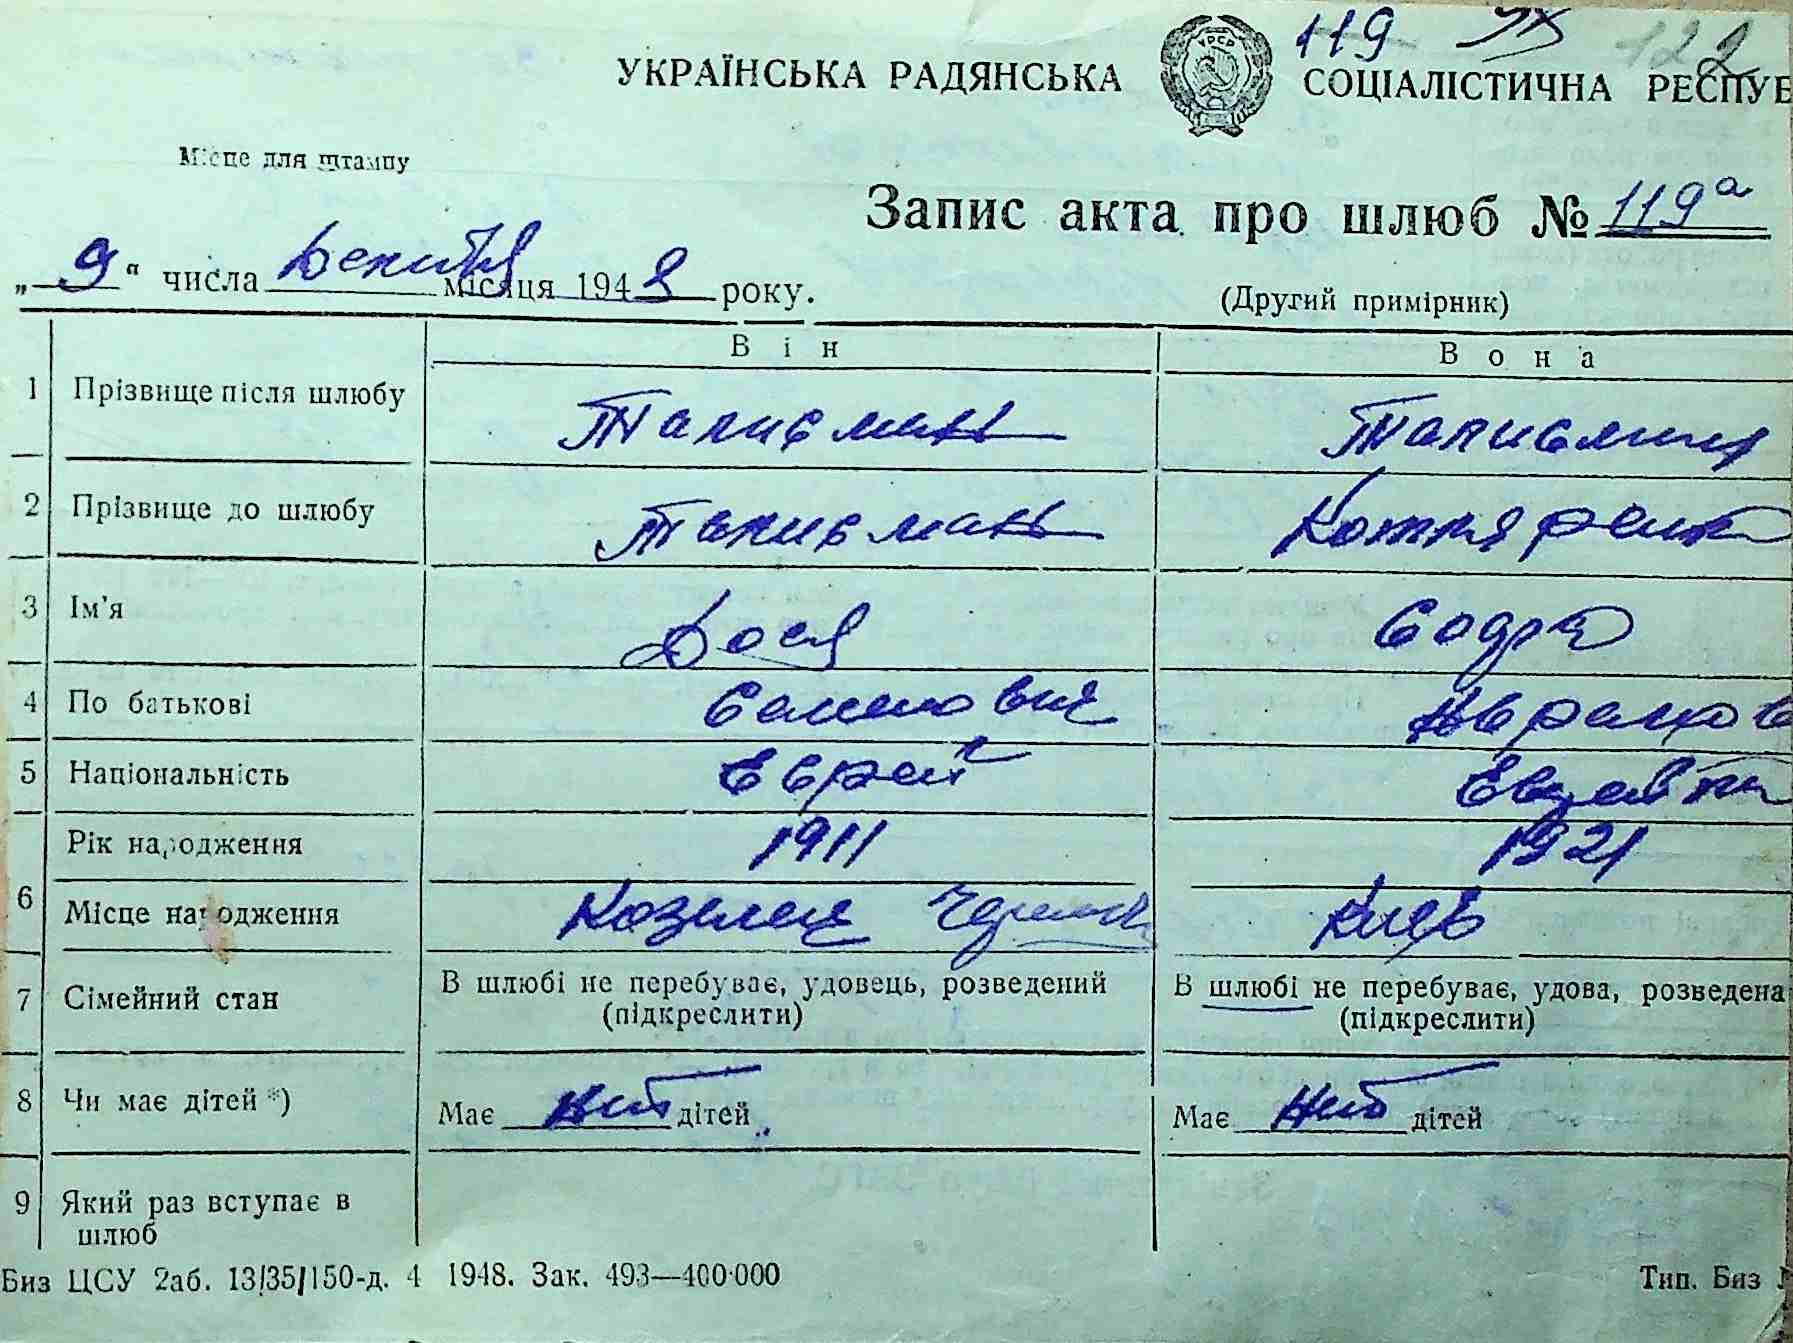 119 122
УКРАЇНСЬКА РАДЯНСЬКА УРСР СОЦІАЛІСТИЧНА РЕСПУБ
Місце для штампу
Запис акта про шлюб № 119а
„9“ числа місяця 1948 року.
(Другий примірник)
Він Вона
1 Прізвище після шлюбу Талисман
2 Прізвище до шлюбу Талисман Котляренко
3 Ім’я Дося
4 По батькові Семенович
5 Національність Еврей Еврейка
Рік народження 1911 1921
6 Місце народження Козелец Киев
7 Сімейний стан В шлюбі не перебуває, удовець, розведений В шлюбі не перебуває, удова, розведена
(підкреслити) (підкреслити)
8 Чи має дітей *) Має нет дітей Має нет дітей
9 Який раз вступає в
шлюб
Биз ЦСУ 2аб. 13/35/150-д. 4 1948. Зак. 493—400·000 Тип. Биз